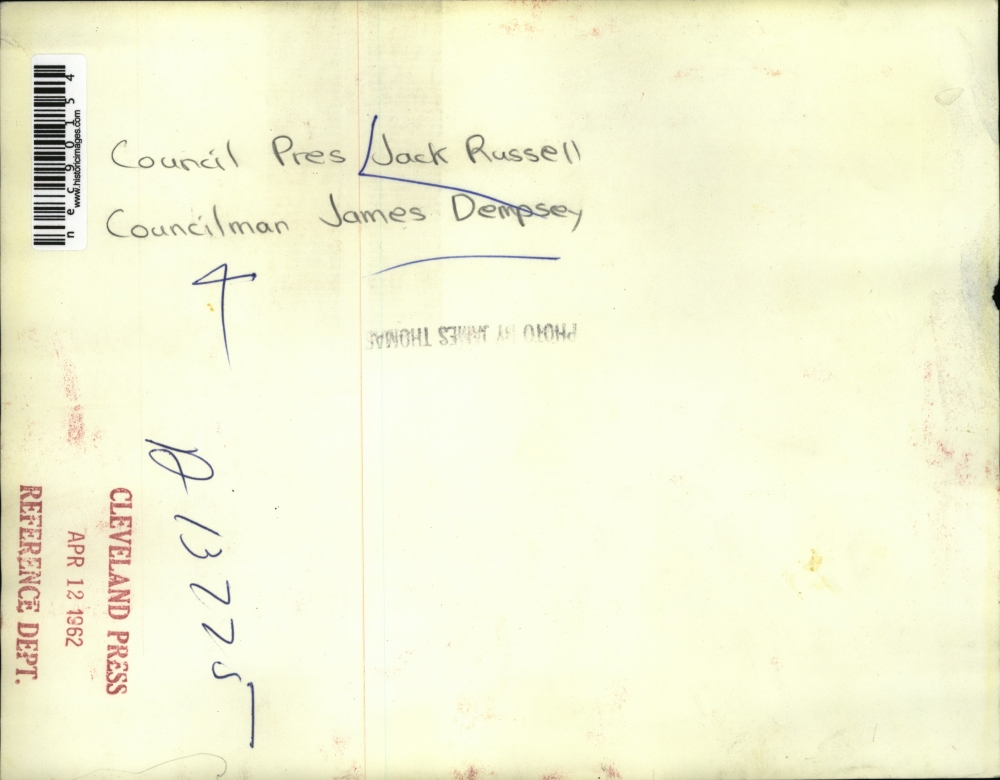 Council Pres Jack Russell
Councilman James Dempsey
4
PHOTO BY JAMES THOMAS
13225
CLEVELAND PRESS
APR 12 1962
REFERENCE DEPT.
nec90154
www.historicimages.com